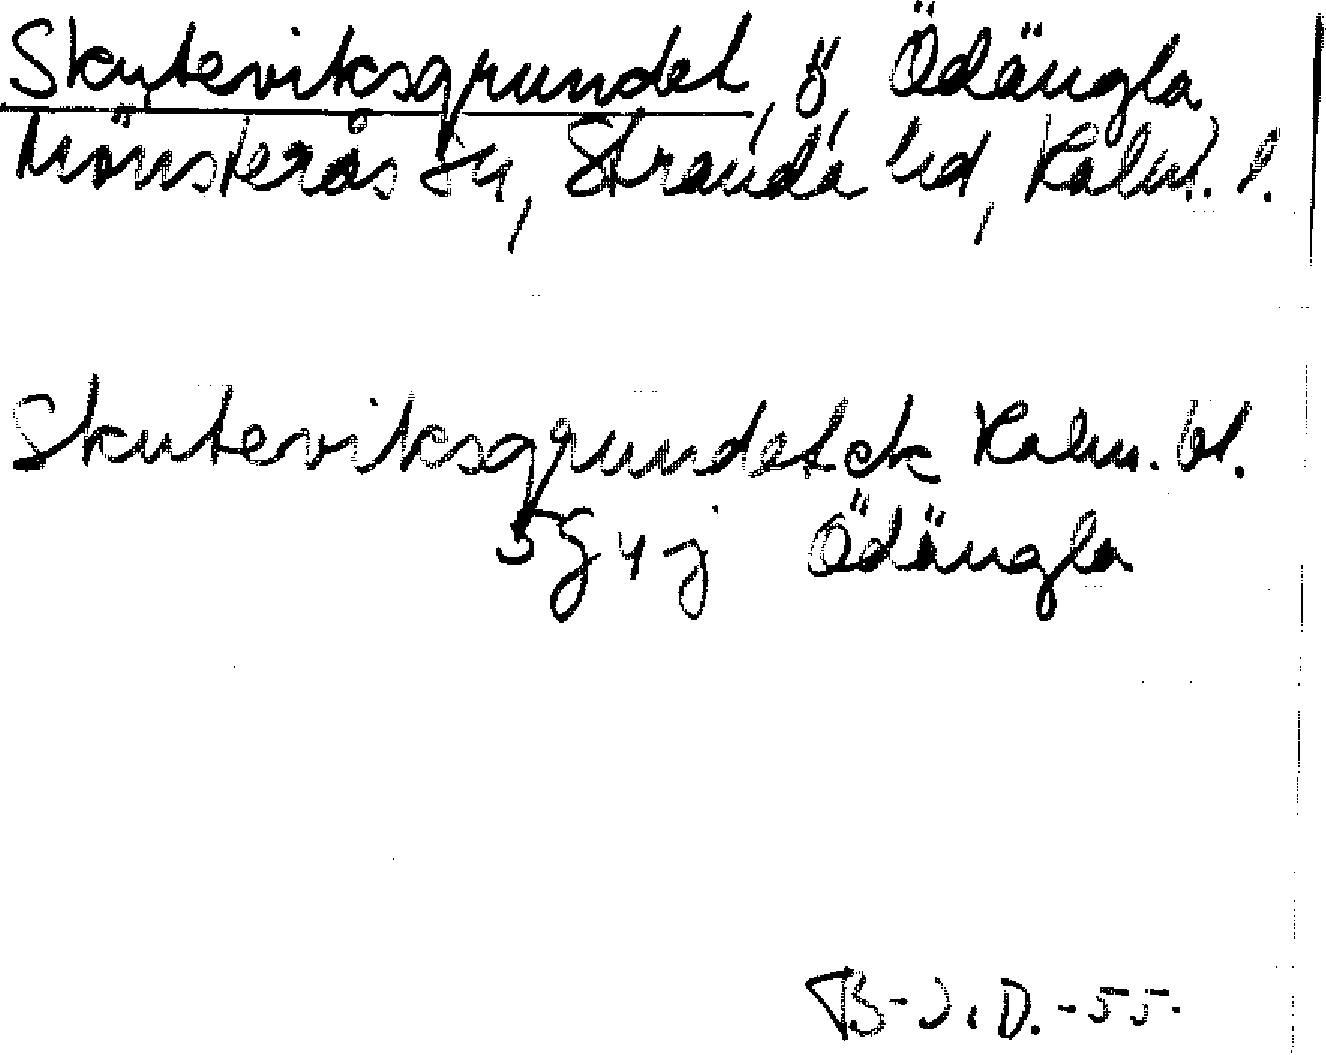 Skuteviksgrundet, ö, Ödängla
Mönsterås sn, Stranda hd, Kalm. l.
Skuteviksgrundet ek Kalm. bl.
5G4j Ödängla
B-J.D.-55.